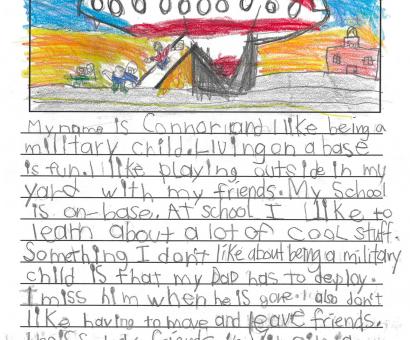 My name is Connor and I like being a
military child. Living on a base
is fun. I like playing outside in my
yard with my friends. My School
is on-base. At school I like to
learn about a lot of cool stuff.
Something I don't like about being a military
child is that my Dad has to deploy.
I miss him when he is gone. I also don't
like having to move and leave friends.